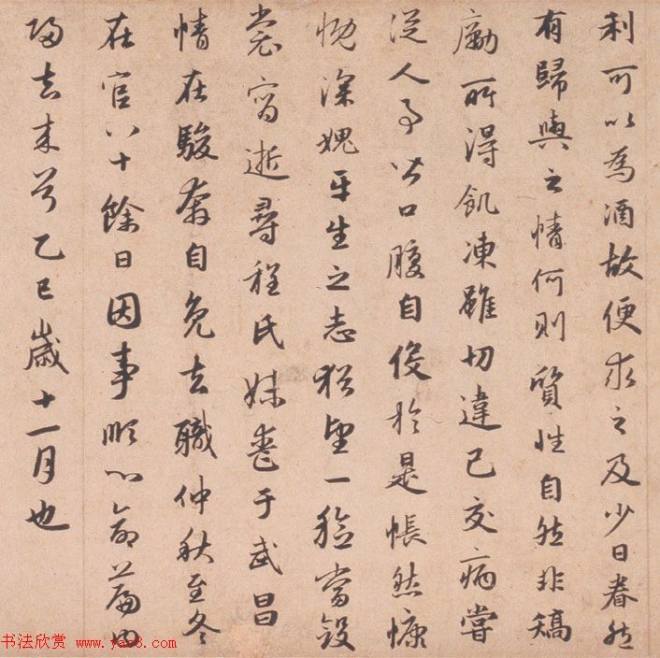 利可以為酒故便求之及少日眷然
有歸與之情何則質性自然非矯
勵所得飢凍雖切違己交病嘗
從人事皆口腹自役於是悵然慷
慨深愧平生之志猶望一稔當斂
裳宵逝尋程氏妹喪于武昌
情在駿奔自免去職仲秋至冬
在官八十餘日因事順心命篇曰
歸去來兮乙巳歲十一月也
书法欣赏 www.yac8.com